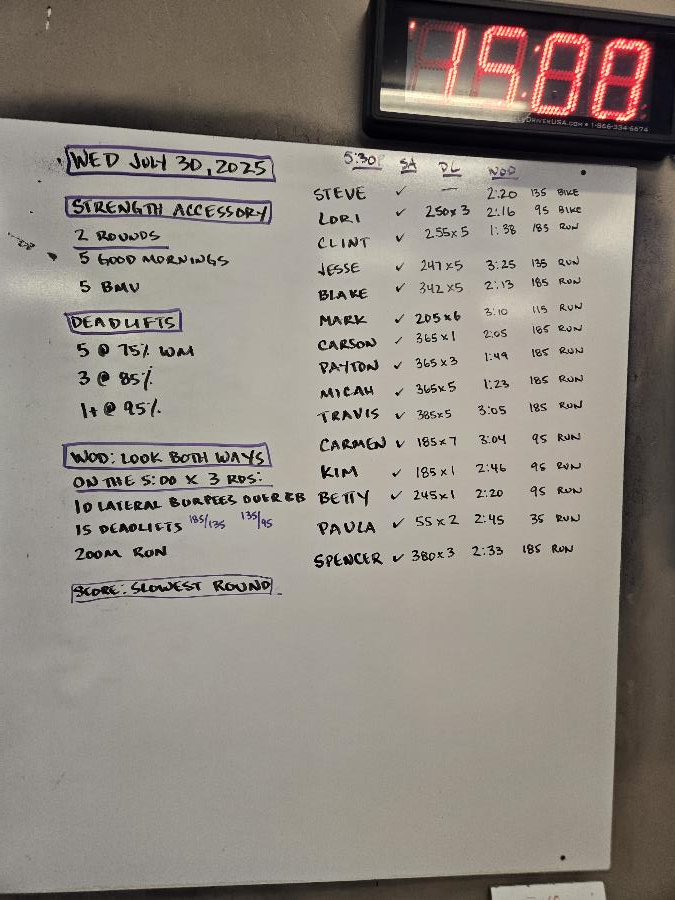 15:00
DRIVENUSA.COM • 1-866-334-6674
WED JULY 30, 2025
STRENGTH ACCESSORY
2 ROUNDS
5 GOOD MORNINGS
5 BMU
DEADLIFTS
5 @ 75% WM
3 @ 85%
1+ @ 95%
WOD: LOOK BOTH WAYS
ON THE 5:00 X 3 RDS:
10 LATERAL BURPEES OVER BB
15 DEADLIFTS 185/135 135/95
200M RUN
SCORE: SLOWEST ROUND
5:30P SA DL WOD
STEVE ✓ — 2:20 135 BIKE
LORI ✓ 250x3 2:16 95 BIKE
CLINT ✓ 255x5 1:38 185 RUN
JESSE ✓ 247x5 3:25 135 RUN
BLAKE ✓ 342x5 2:13 185 RUN
MARK ✓ 205x6 3:10 115 RUN
CARSON ✓ 365x1 2:05 185 RUN
PAYTON ✓ 365x3 1:49 185 RUN
MICAH ✓ 365x5 1:23 185 RUN
TRAVIS ✓ 385x5 3:05 185 RUN
CARMEN ✓ 185x7 3:04 95 RUN
KIM ✓ 185x1 2:46 95 RUN
BETTY ✓ 245x1 2:20 95 RUN
PAULA ✓ 55x2 2:45 35 RUN
SPENCER ✓ 380x3 2:33 185 RUN